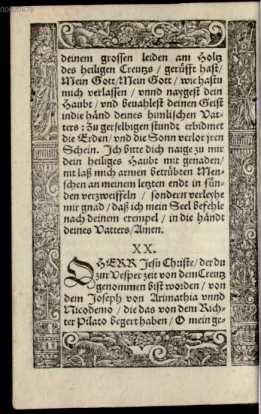 deinem grossen leiden am Holtz
des heiligen Creutzs / gerüfft hast/
Mein Gott/Mein Gott / wie hastu
mich verlassen / vnnd naygest dein
Haubt / vnd beuahlest deinen Geist
in die händ deines himlischen Vat-
ters : Zu gerselbigen stundt erbidmet
die Erden/ vnd die Sonn verlor jren
Schein. Ich bitte dich naige zu mir
dein heiliges Haubt mit genaden/
nit laß mich armen betrübten Men-
schen an meinem letzten endt in sün-
den verzweiffeln / sondern verleyhe
mir gnad / daß ich mein Seel befehle
nach deinem exempel / in die händt
deines Vatters/Amen.
XX.
O HERR Jesu Christe/der du
zur Vesper zeit von dem Creutz
genommen bist worden / von
dem Joseph von Arimathia vnnd
Nicodemo / die das von dem Rich-
ter Pilato begert haben / O mein ge-